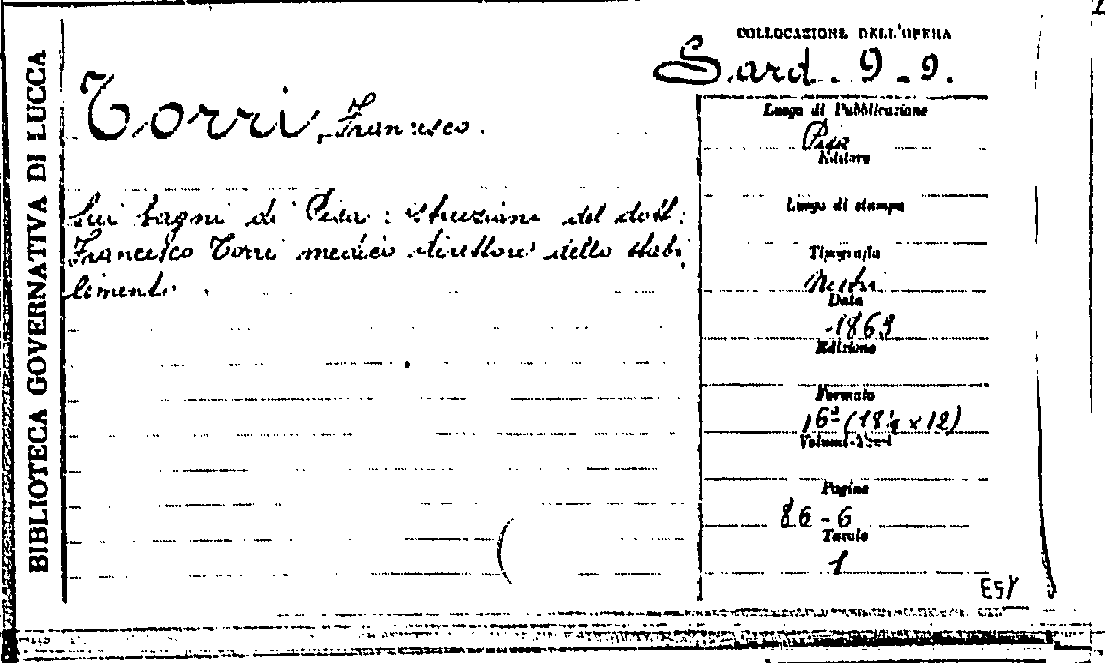 BIBLIOTECA GOVERNATIVA DI LUCCA
COLLOCAZIONE DELL'OPERA
Sard. 9-9.
Torri, Francesco.
Sui bagni di Pisa: istruzioni del dott:
Francesco Torri medico direttore dello stabi
limento.
Luogo di Pubblicazione
Pisa
Editore
Luogo di stampa
Tipografia
Nistri
Data
1863
Edizione
Formato
16º (18½ x 12)
Volumi
Pagine
86-6
Tavole
1